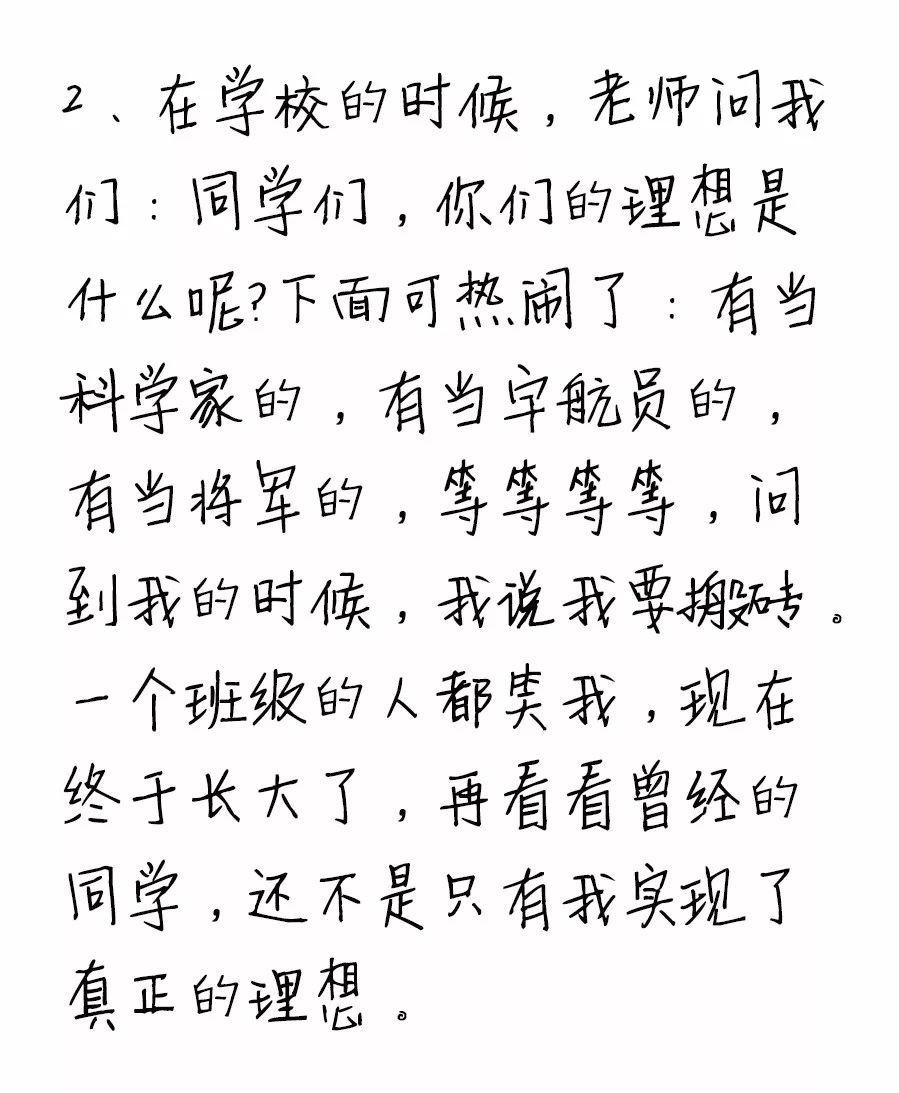 2、在学校的时候，老师问我
们：同学们，你们的理想是
什么呢?下面可热闹了：有当
科学家的，有当宇航员的，
有当将军的，等等等等，问
到我的时候，我说我要搬砖。
一个班级的人都笑我，现在
终于长大了，再看看曾经的
同学，还不是只有我实现了
真正的理想。